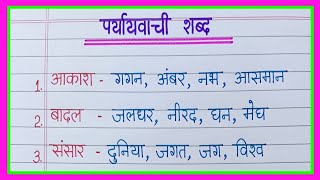 पर्यायवाची शब्द
1. आकाश - गगन, अंबर, नभ, आसमान
2. बादल - जलधर, नीरद, घन, मेघ
3. संसार - दुनिया, जगत, जग, विश्व